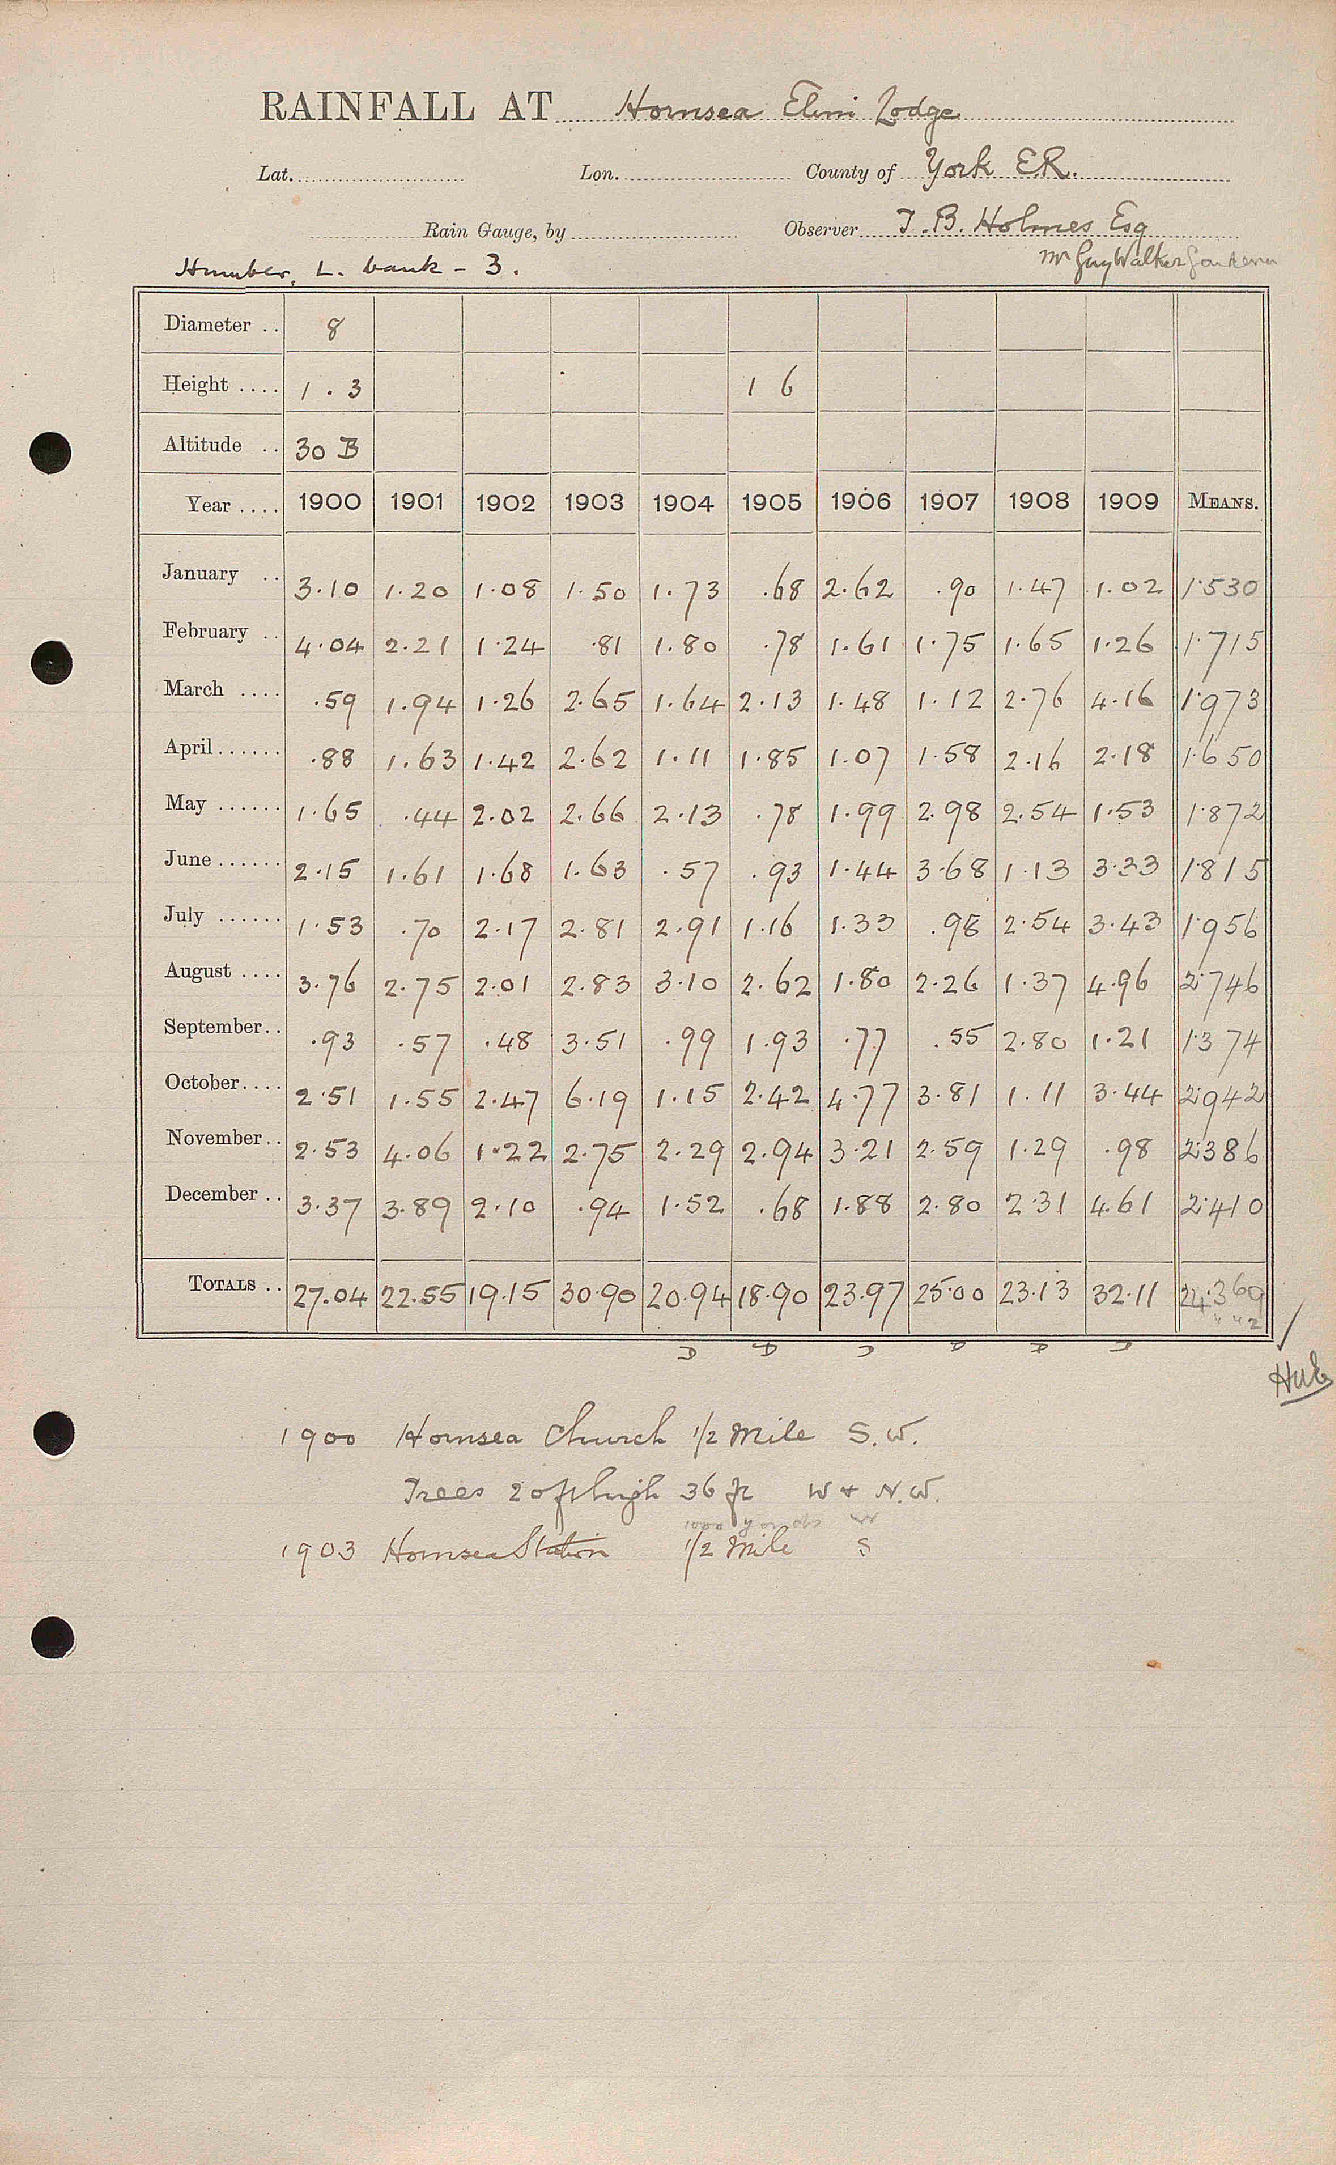 RAINFALL AT Hornsea Elim Lodge
Lat. Lon. County of York E.R.
Rain Gauge, by Observer T. B. Holmes Esq
Humber, L. bank - 3. Mr Guy Walker Gardener
Diameter .. 8
Height .... 1 . 3 1 6
Altitude .. 30 B
Year .... 1900 1901 1902 1903 1904 1905 1906 1907 1908 1909 MEANS.
January .. 3.10 1.20 1.08 1.50 1.73 .68 2.62 .90 1.47 1.02 1.530
February .. 4.04 2.21 1.24 .81 1.80 .78 1.61 1.75 1.65 1.26 1.715
March .... .59 1.94 1.26 2.65 1.64 2.13 1.48 1.12 2.76 4.16 1.973
April ...... .88 1.63 1.42 2.62 1.11 1.85 1.07 1.58 2.16 2.18 1.650
May ...... 1.65 .44 2.02 2.66 2.13 .78 1.99 2.98 2.54 1.53 1.872
June ...... 2.15 1.61 1.68 1.63 .57 .93 1.44 3.68 1.13 3.33 1.815
July ...... 1.53 .70 2.17 2.81 2.91 1.16 1.33 .98 2.54 3.43 1.956
August .... 3.76 2.75 2.01 2.83 3.10 2.62 1.80 2.26 1.37 4.96 2.746
September .. .93 .57 .48 3.51 .99 1.93 .77 .55 2.80 1.21 1.374
October .... 2.51 1.55 2.47 6.19 1.15 2.42 4.77 3.81 1.11 3.44 2.942
November .. 2.53 4.06 1.22 2.75 2.29 2.94 3.21 2.59 1.29 .98 2.386
December .. 3.37 3.89 2.10 .94 1.52 .68 1.88 2.80 2.31 4.61 2.410
TOTALS .. 27.04 22.55 19.15 30.90 20.94 18.90 23.97 25.00 23.13 32.11 24.369
D D D D D D
1900 Hornsea Church 1/2 Mile S.W.
Trees 20 ft high 36 ft W & N.W.
1000 yards W
1903 Hornsea Station 1/2 Mile S